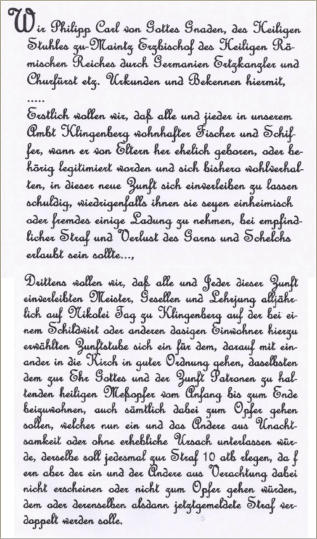 Wir Philipp Carl von Gottes Gnaden, des Heiligen
Stuhles zu Maintz Erzbischof des Heiligen Rö-
mischen Reiches durch Germanien Ertzkanzler und
Churfürst etz. Urkunden und Bekennen hiermit,
.....
Erstlich wollen wir, daß alle und jieder in unserem
Ambt Klingenberg wohnhafter Fischer und Schif-
fer, wann er von Eltern her ehelich geboren, oder be-
hörig legitimiert worden und sich bishero wohlverhal-
ten, in dieser neue Zunft sich einverleiben zu lassen
schuldig, wiedrigenfalls ihnen sie seyen einheimisch
oder fremdes einige Ladung zu nehmen, bei empfind-
licher Straf und Verlust des Garns und Schelchs
erlaubt sein sollte...,
Drittens wollen wir, daß alle und Jeder dieser Zunft
einverleibten Meister, Gesellen und Lehrjung alljähr-
lich auf Nikolei Tag zu Klingenberg auf der bei ei-
nem Schildwirt oder anderen dasigen Einwohner hierzu
erwählten Zunftstube sich ein für dem, darauf mit ein-
ander in die Kirch in guter Ordnung gehen, daselbsten
dem zur Ehr Gottes und der Zunft Patronen zu hal-
tenden heiligen Meßopfer vom Anfang bis zum Ende
beizuwohnen, auch sämtlich dabei zum Opfer gehen
sollen, welcher nun ein und das Andere aus Unacht-
samkeit oder ohne erhebliche Ursach unterlassen wür-
de, derselbe soll jedesmal zur Straf 10 atb elegen, da f
ern aber der ein und der Andere aus Verachtung dabei
nicht erscheinen oder nicht zum Opfer gehen würden,
dem oder derenselben alsdann jetztgemeldete Straf ver-
doppelt werden solle.